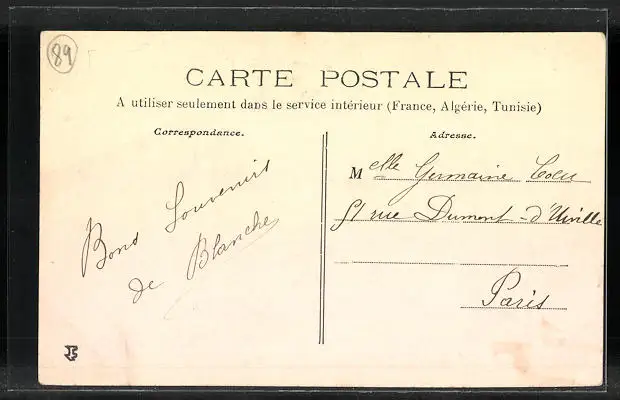 89
CARTE POSTALE
A utiliser seulement dans le service intérieur (France, Algérie, Tunisie)
Correspondance.
Bons Souvenirs
de Blanche
Adresse.
Melle Germaine
rue Dumont-d'Urville
Paris